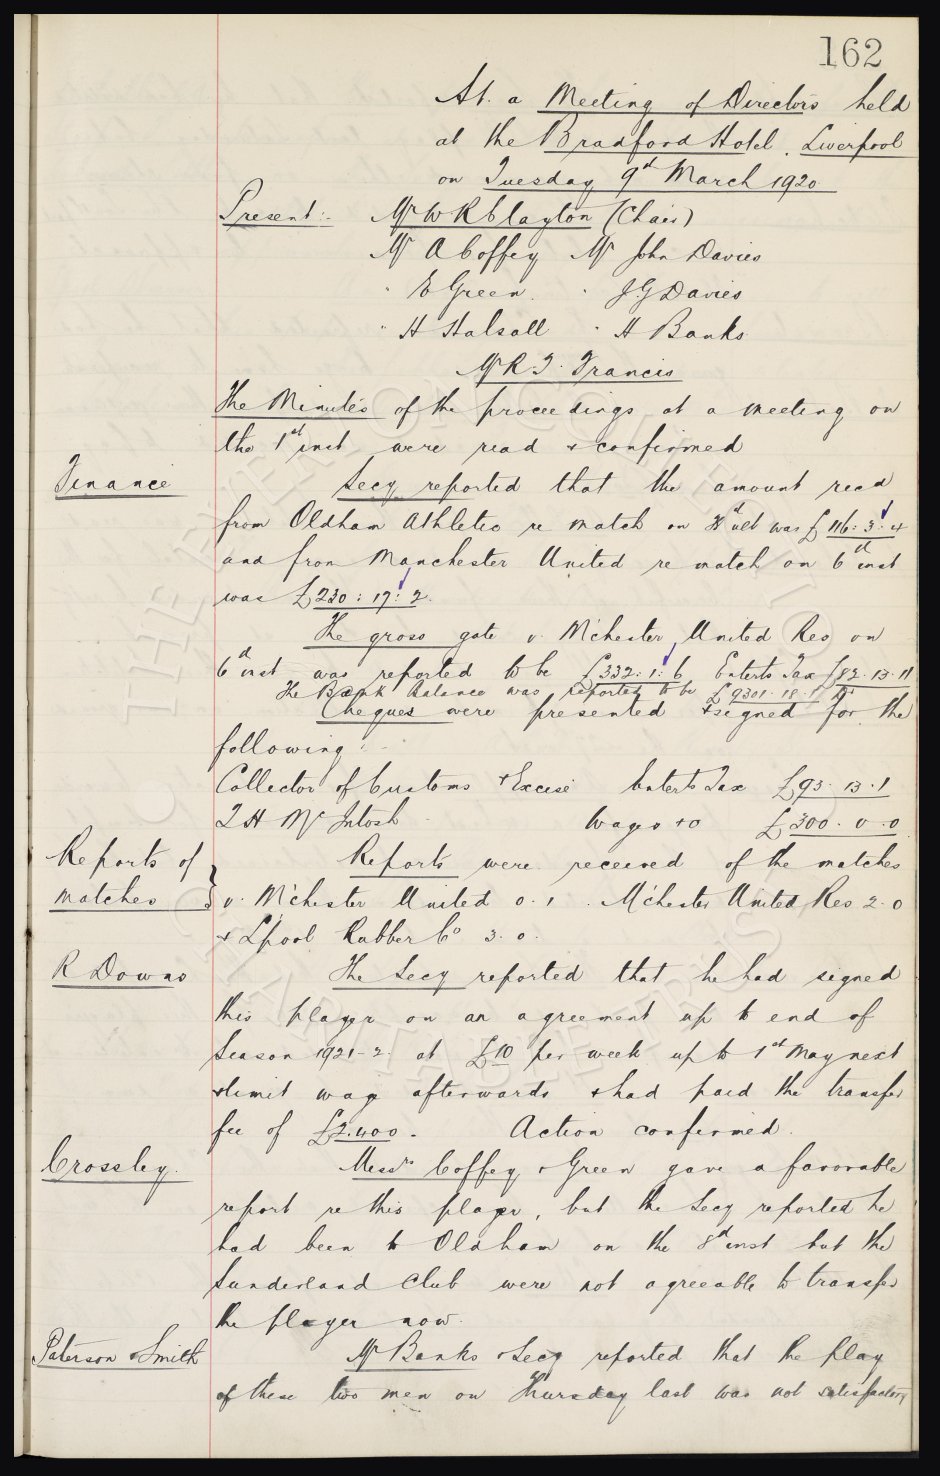 162
At a Meeting of Directors held
at the Bradford Hotel, Liverpool
on Tuesday 9th March 1920
Present:- Mr W R Clayton (Chair)
Mr A Coffey Mr John Davies
" E Green " J.G Davies
" H Halsall " H Banks
Mr R.T. Francis
The Minutes of the proceedings at a meeting on
the 1st inst were read & confirmed
Finance Secy reported that the amount recd
from Oldham Athletic re match on ult was £116:3:4
and from Manchester United re match on 6th inst
was £230:17:2.
The gross gate v. M'chester United Res on
6th inst was reported to be £332:1:6 Enterts Tax £82.13.11
The Bank Balance was reported to be £9301.18.1
Cheques were presented & signed for the
following:-
Collector of Customs & Excise Enterts Tax £93.13.1
T H McIntosh Wages &c £300.0.0
Reports of matches } Reports were received of the matches
v. M'chester United 0.1. M'chester United Res 2.0
& L'pool Rubber Co 3.0.
R Downs The Secy reported that he had signed
this player on an agreement up to end of
Season 1921-2 at £10 per week up to 1st May next
& limit wage afterwards & had paid the transfer
fee of £2.400. Action confirmed.
Crossley. Messrs Coffey & Green gave a favorable
report re this player, but the Secy reported he
had been to Oldham on the 8th inst but the
Sunderland Club were not agreeable to transfer
the player now.
Paterson & Smith Mr Banks & Secy reported that the play
of these two men on Thursday last was not satisfactory